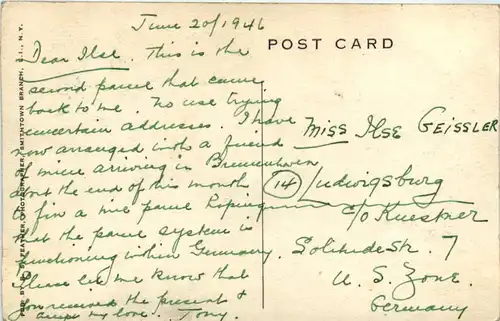 June 20/1946
Dear Ilse. This is the
second parcel that came
back to me. No use trying
uncertain addresses. I have
now arranged with a friend
of mine arriving in Bremenhaven
about the end of this month
to fix a nice parcel hoping
that the parcel system is
functioning within Germany.
Please let me know that
you received the present &
accept my love. Tony.
POST CARD
Miss Ilse GEISSLER
(14) Ludwigsburg
c/o Kuestner
Solitude Str. 7
U. S. Zone.
Germany
FEATHER, PHOTOGRAPHER, SMITHTOWN BRANCH, L.I., N.Y.